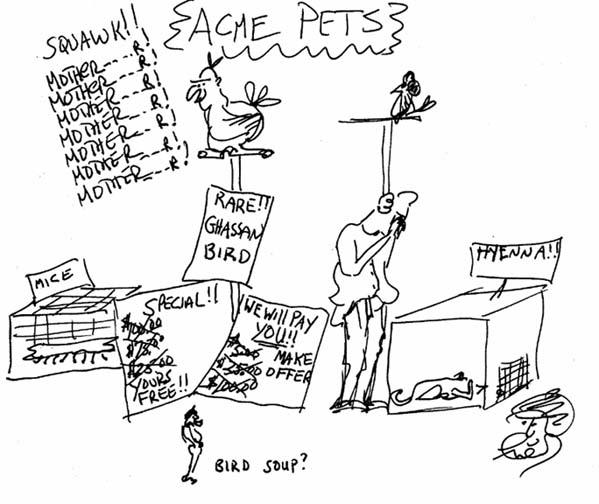 ACME PETS
SQUAWK!!
MOTHER-----R!
MOTHER-----R!
MOTHER----R!
MOTHER----R!
MOTHER----R!
MOTHER----R!
MOTHER---R!
RARE!!
GHASSAN
BIRD
MICE
HYENNA!!
SPECIAL!!
$100.00
$25.00
YOURS
FREE!!
WE WILL PAY
YOU!!
$5.00
MAKE
OFFER
$100.00
BIRD SOUP?